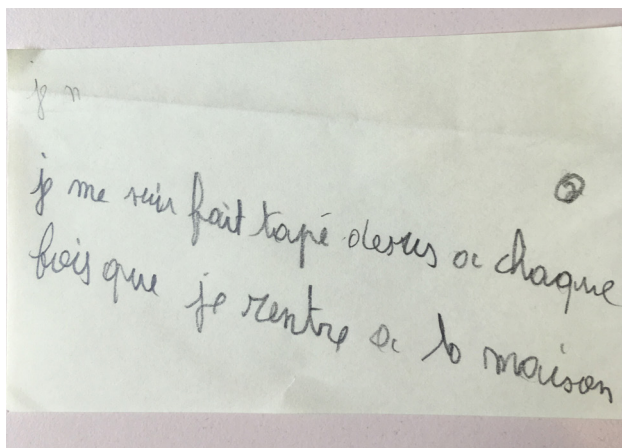 je n
je me suis fait tapé desus a chaque
fois que je rentre a la maison